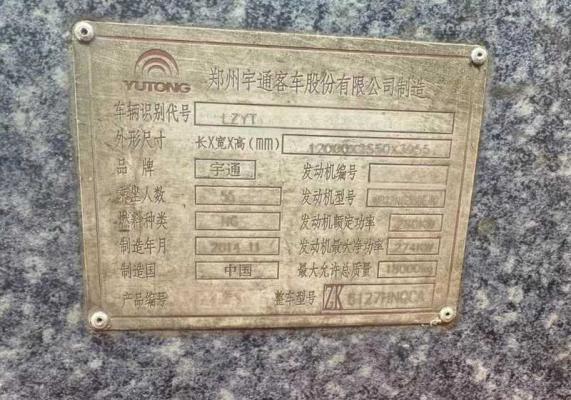 YUTONG 郑州宇通客车股份有限公司制造
车辆识别代号 LZYT
外形尺寸 长X宽X高(mm)
品牌 宇通 发动机编号
乘坐人数 55 发动机型号
燃料种类 NG 发动机额定功率
制造年月 2014.11 发动机最大净功率 274KW
制造国 中国 最大允许总质量 18000kg
产品编号 整车型号 ZK 6127HNQCA